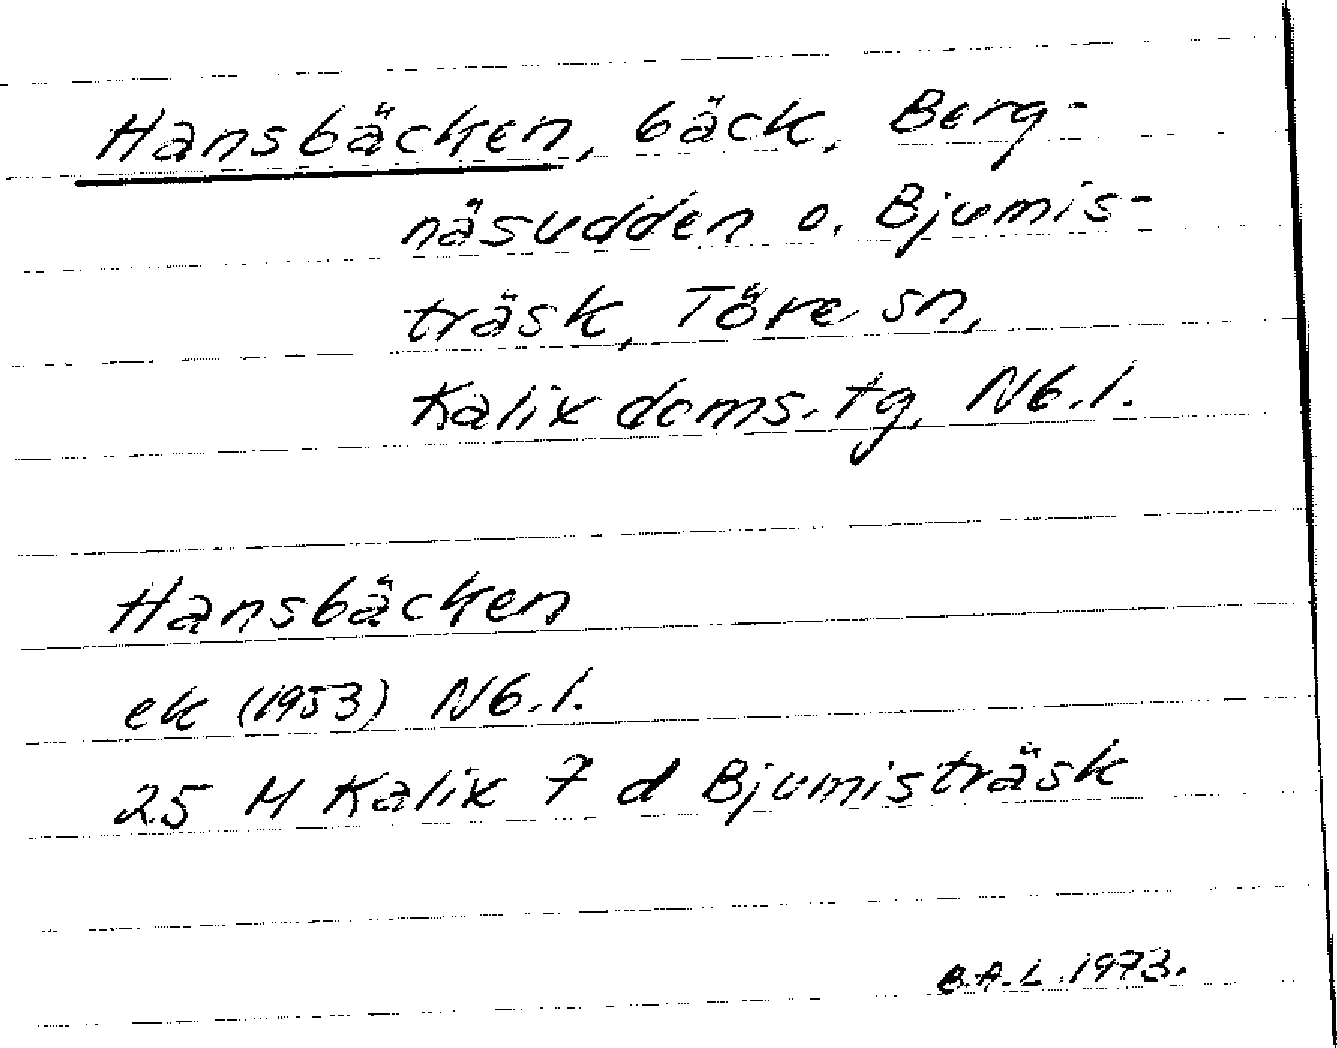 Hansbäcken, bäck, Berg-
näsudden o. Bjumis-
träsk, Töre sn,
Kalix doms. tg, Nb. l.
Hansbäcken
ek (1953) Nb. l.
25 M Kalix 7 d Bjumisträsk
B.A.L. 1973.